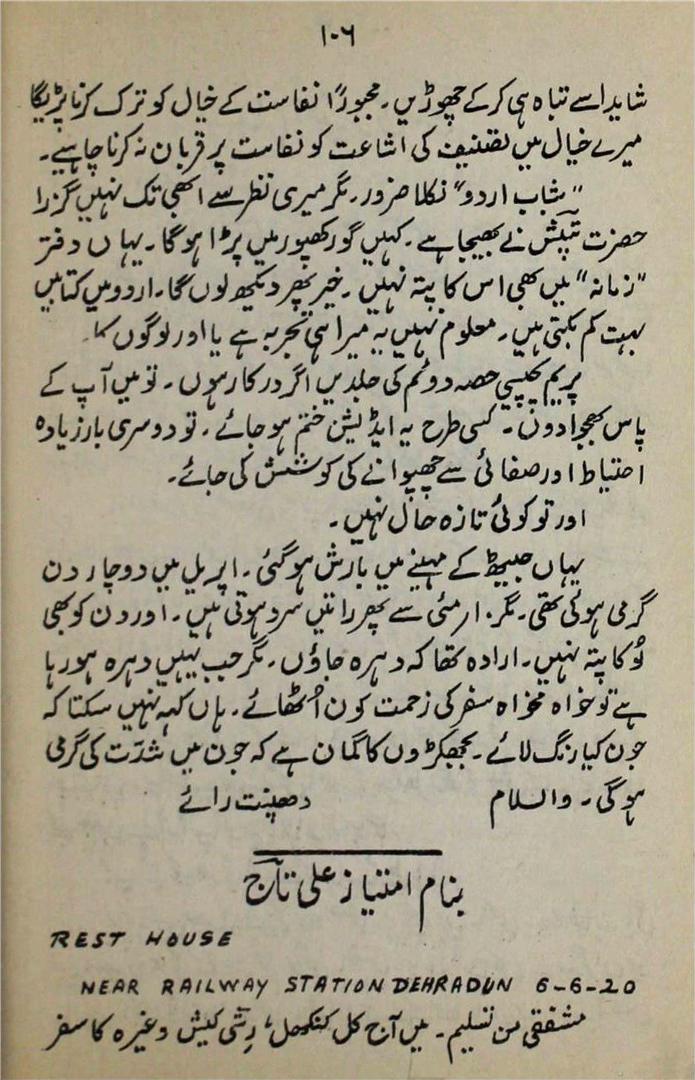 ۱۰۶
شاید اسے تباہ ہی کر کے چھوڑیں۔ مجبوراً نفاست کے خیال کو ترک کرنا پڑیگا
میرے خیال میں تصنیف کی اشاعت کو نفاست پر قربان نہ کرنا چاہیے۔
"شباب اردو" نکلا ضرور۔ مگر میری نظر سے ابھی تک نہیں گزرا
حضرت تپش نے بھیجا ہے۔ کہیں گورکھپور میں پڑا ہوگا۔ یہاں دفتر
"زمانہ" میں بھی اس کا پتہ نہیں۔ خیر پھر دیکھ لوں گا۔ اردو میں کتابیں
بہت کم بکتی ہیں۔ معلوم نہیں یہ میرا ہی تجربہ ہے یا اور لوگوں کا۔
پریم پچیسی حصہ دوئم کی جلدیں اگر درکار ہوں۔ تو میں آپ کے
پاس بھجوا دوں۔ کسی طرح یہ ایڈیشن ختم ہو جائے۔ تو دوسری بار زیادہ
احتیاط اور صفائی سے چھپوانے کی کوشش کی جائے۔
اور تو کوئی تازہ حال نہیں۔
یہاں جیٹھ کے مہینے میں بارش ہو گئی۔ اپریل میں دو چار دن
گرمی ہوئی تھی۔ مگر ۱۰ مئی سے پھر راتیں سرد ہوتی ہیں۔ اور دن کو بھی
لُو کا پتہ نہیں۔ ارادہ تھا کہ دہرہ جاؤں۔ مگر جب یہیں دہرہ ہو رہا
ہے تو خواہ مخواہ سفر کی زحمت کون اُٹھائے۔ ہاں کہہ نہیں سکتا کہ
جون کیا رنگ لائے۔ بجھکڑوں کا گمان ہے کہ جون میں شدّت کی گرمی
ہوگی۔ والسلام دھنپت رائے
بنام امتیاز علی تاج
REST HOUSE
NEAR RAILWAY STATION DEHRADUN 6-6-20
مشفقی من تسلیم۔ میں آج کل کنکھل، رشی کیش وغیرہ کا سفر